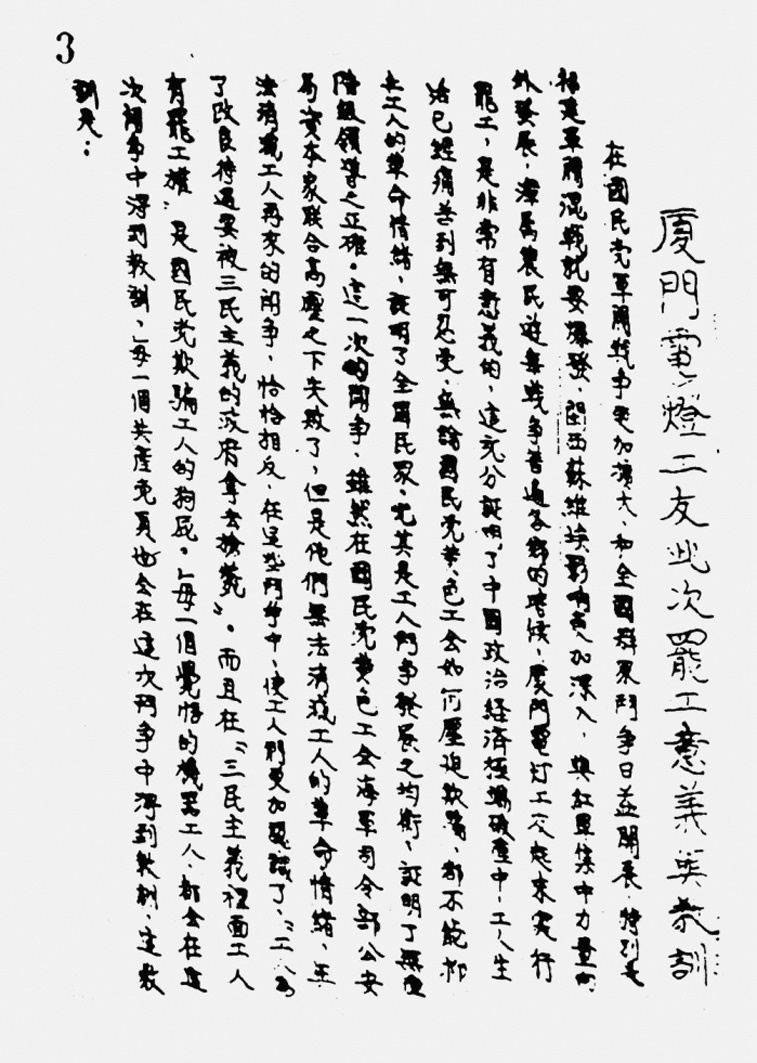 3
厦門電燈工友此次罷工意義與教訓
在國民党軍閥战争更加擴大、和全國群眾鬥争日益開展、特别是
福建軍閥混戰就要爆發、閩西蘇維埃影响更加深入、與紅軍集中力量向
外發展、漳属農民遊擊战争普遍各鄉的時候、厦門電灯工友起來实行
罷工、是非常有意義的、這充分証明了中國政治経済極端破產中、工人生
活已經痛苦到無可忍受、無論國民党黄色工会如何壓迫欺騙、都不能抑
止工人的革命情緒、証明了全國民眾、尤其是工人鬥争發展之均衡、証明了無産
階級領導之正確。這一次的鬥争、雖然在國民党黄色工会海軍司令部公安
局資本家联合高壓之下失敗了、但是他們無法消滅工人的革命情緒、無
法消滅工人再來的鬥争、恰恰相反、在這些鬥争中、使工人們更加認識了、“工人為
了改良待遇要被三民主義的政府拿去槍斃”。而且在“三民主義裡面工人
有罷工權”是國民党欺騙工人的狗屁。」每一個覺悟的機器工人、都会在這
次鬥争中得到教訓、」每一個共產党員也会在這次鬥争中得到教訓、這教
訓是：